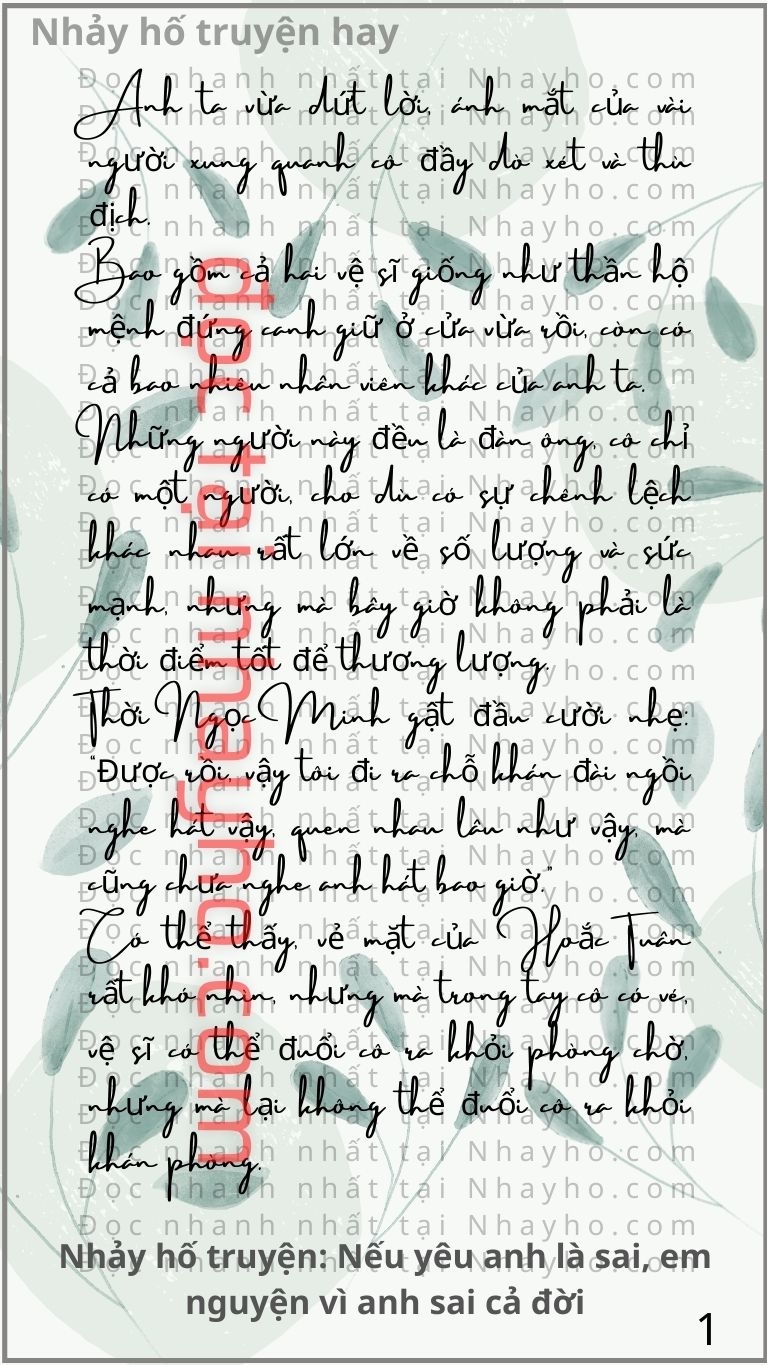 Nhảy hố truyện hay
Anh ta vừa dứt lời, ánh mắt của vài
người xung quanh cô đầy dò xét và thù
địch.
Bao gồm cả hai vệ sĩ giống như thần hộ
mệnh đứng canh giữ ở cửa vừa rồi, còn có
cả bao nhiêu nhân viên khác của anh ta.
Những người này đều là đàn ông, cô chỉ
có một người, cho dù có sự chênh lệch
khác nhau rất lớn về số lượng và sức
mạnh, nhưng mà bây giờ không phải là
thời điểm tốt để thương lượng.
Thời Ngọc Minh gật đầu cười nhẹ:
“Được rồi, vậy tôi đi ra chỗ khán đài ngồi
nghe hát vậy, quen nhau lâu như vậy, mà
cũng chưa nghe anh hát bao giờ.”
Có thể thấy, vẻ mặt của Hoắc Tuân
rất khó nhìn, nhưng mà trong tay cô có vé,
vệ sĩ có thể đuổi cô ra khỏi phòng chờ,
nhưng mà lại không thể đuổi cô ra khỏi
khán phòng.
đọc tại nhayho.com
Đọc nhanh nhất tại Nhayho.com
Nhảy hố truyện: Nếu yêu anh là sai, em
nguyện vì anh sai cả đời
1